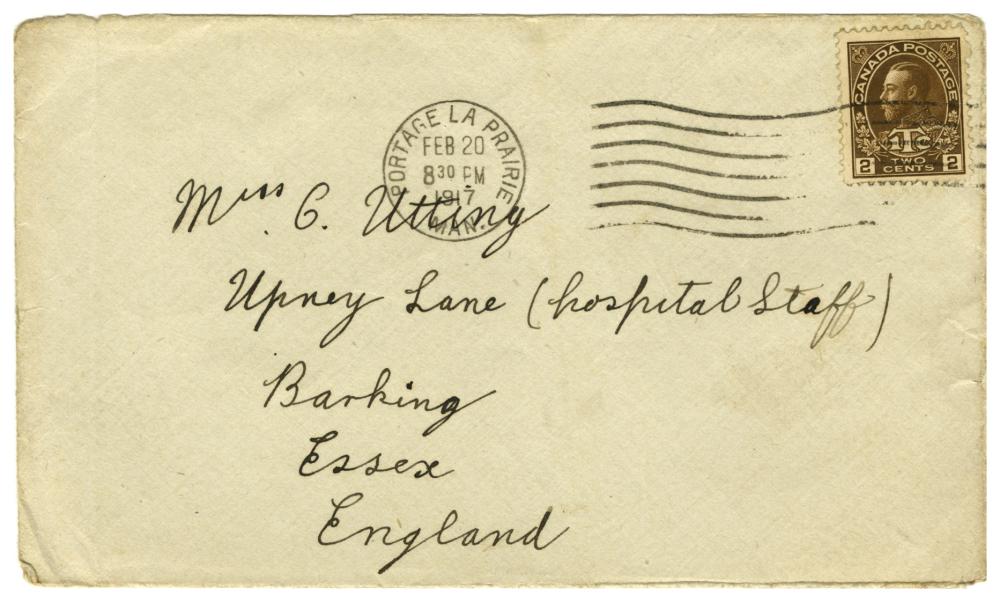 CANADA POSTAGE
1TC
2 TWO CENTS 2
PORTAGE LA PRAIRIE
FEB 20
8 30 PM
1917
MAN.
Miss C. Utting
Upney Lane (hospital Staff)
Barking
Essex
England